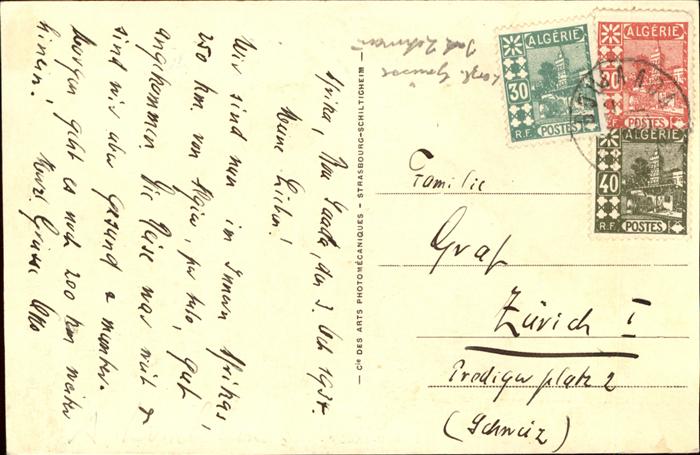 Afrika, Bou Saada, den 3. Oct 1937.
Meine Lieben!
Wir sind nun im Innern Afrikas,
250 km. von Algier, per Auto, gut
angekommen. Die Reise war mit
sind wir aber gesund & munter.
Morgen geht es noch 200 km weiter
hinein! Herzl. Grüsse Otto
Cie DES ARTS PHOTOMÉCANIQUES - STRASBOURG-SCHILTIGHEIM
ALGÉRIE
30
R.F. POSTES
ALGÉRIE
POSTES
ALGÉRIE
40
R.F. POSTES
Familie
Graf
Zürich I
Predigerplatz 2
(Schweiz)